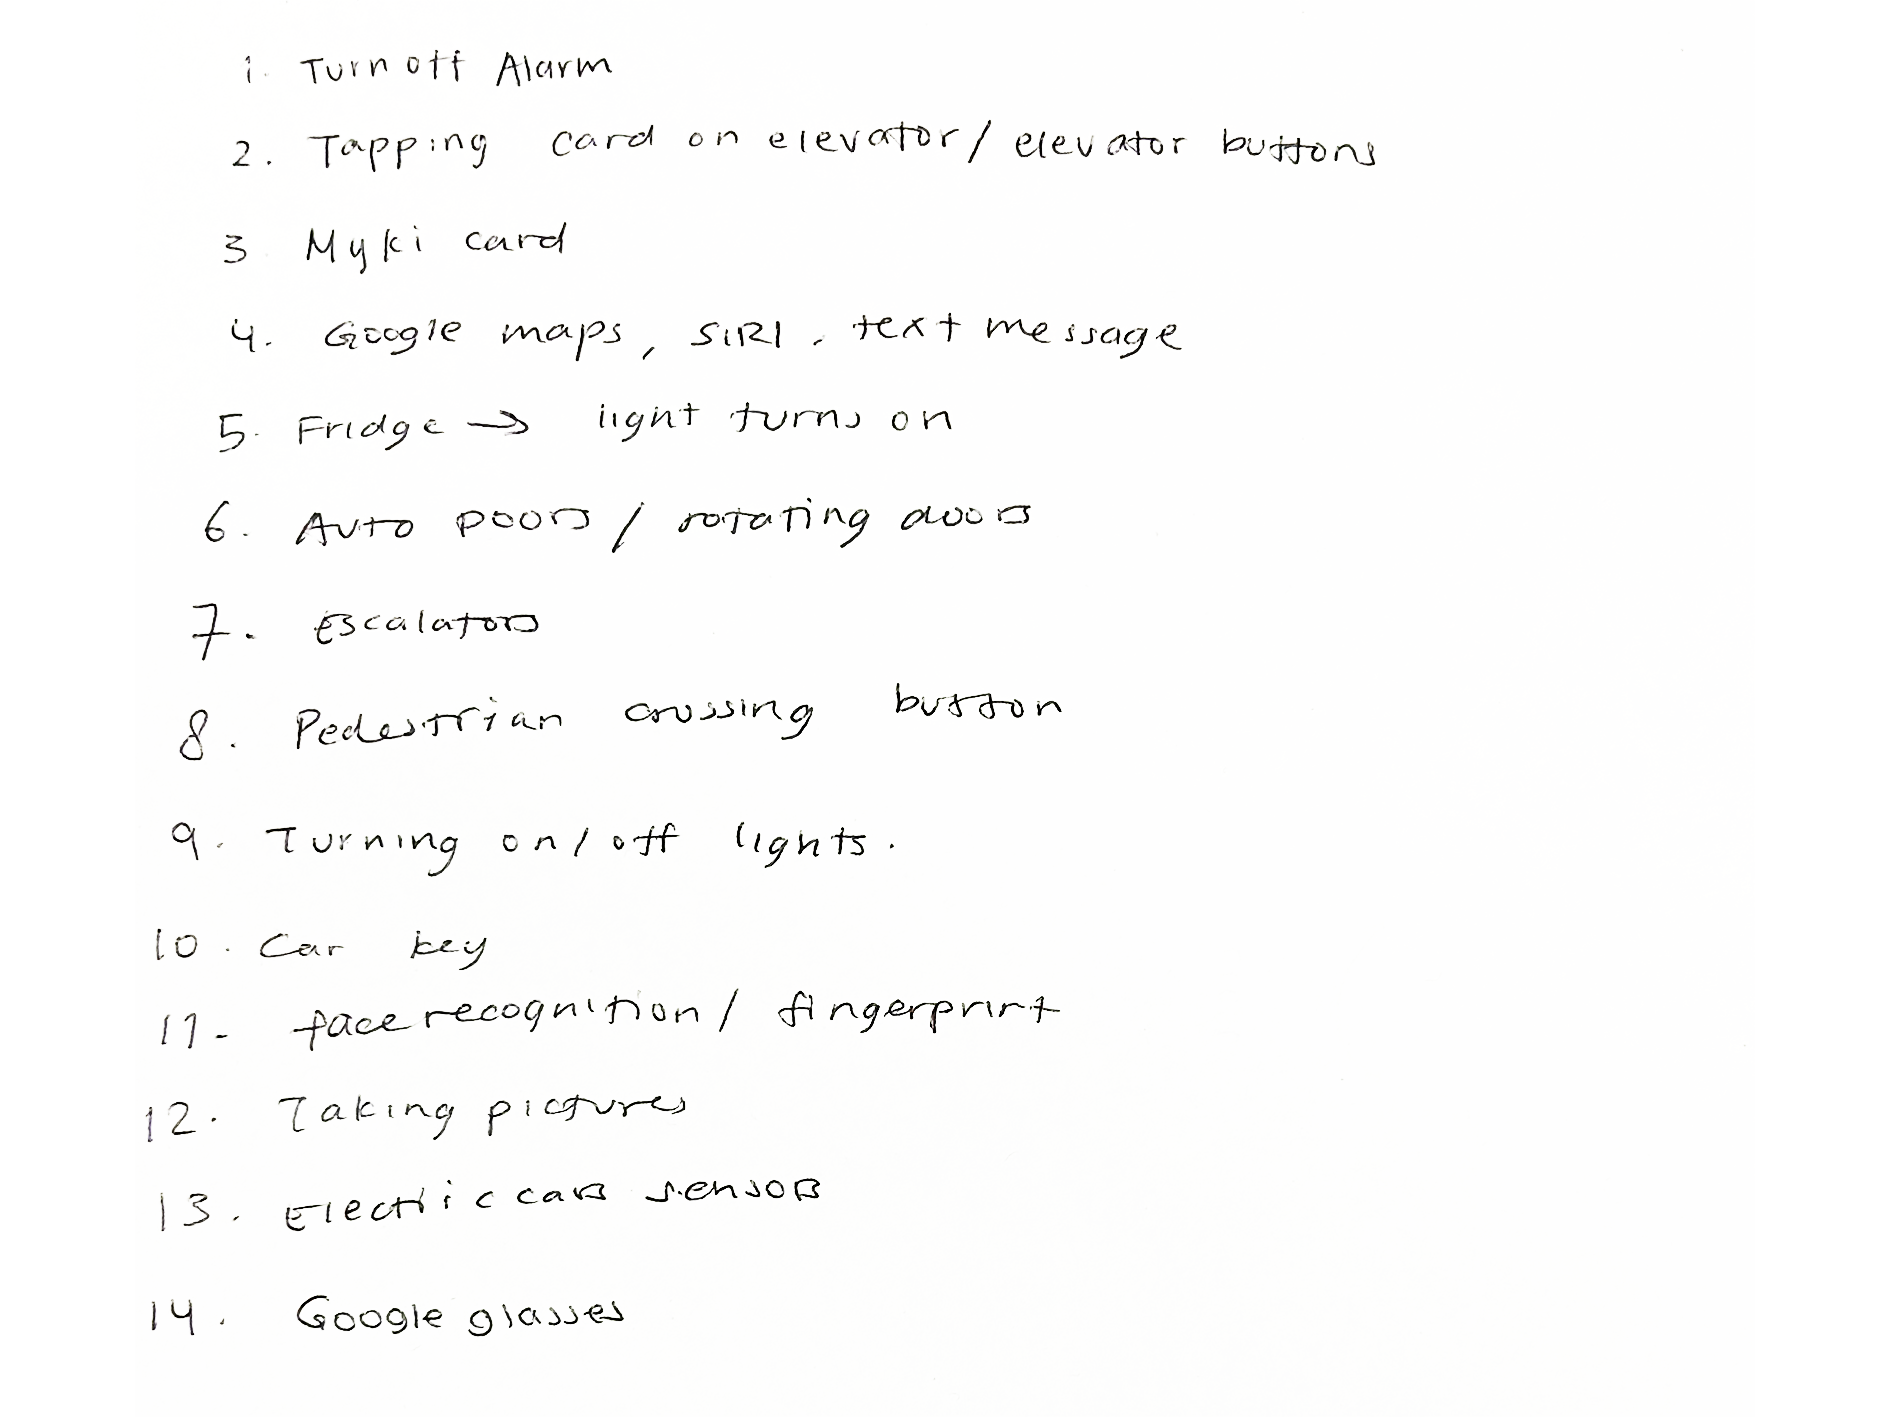 1. Turn off Alarm
2. Tapping card on elevator/ elevator buttons
3 Myki card
4. Google maps, SIRI, text message
5. Fridge → light turns on
6. Auto Doors / rotating doors
7. Escalators
8. Pedestrian crossing button
9. Turning on/off lights.
10. Car key
11- face recognition/ fingerprint
12. Taking pictures
13. Electric cars sensors
14. Google glasses